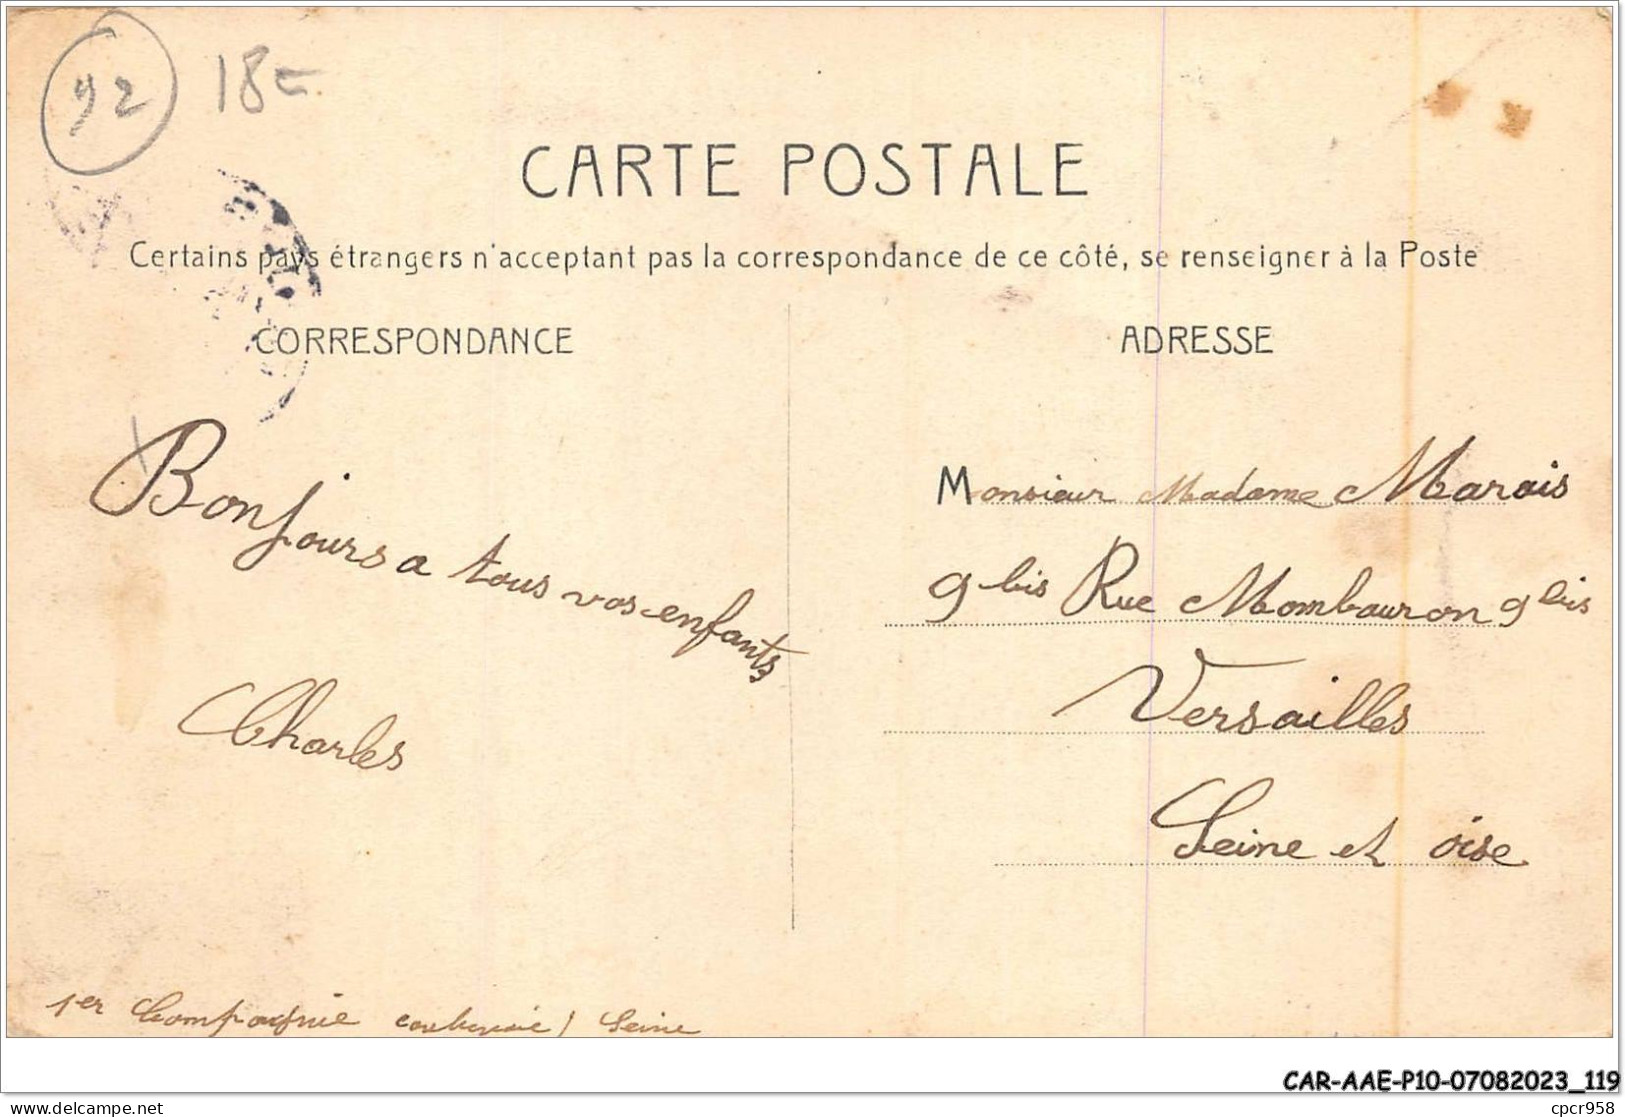 92 18
CARTE POSTALE
Certains pays étrangers n'acceptant pas la correspondance de ce côté, se renseigner à la Poste
CORRESPONDANCE
ADRESSE
Bonjours a tous vos enfants
Charles
Monsieur Madame Marais
9 bis Rue Mombauron 9 bis
Versailles
Seine et oise
1er Compagnie courbevoie / Seine
CAR-AAE-P10-07082023_119
www.delcampe.net
cpcr958